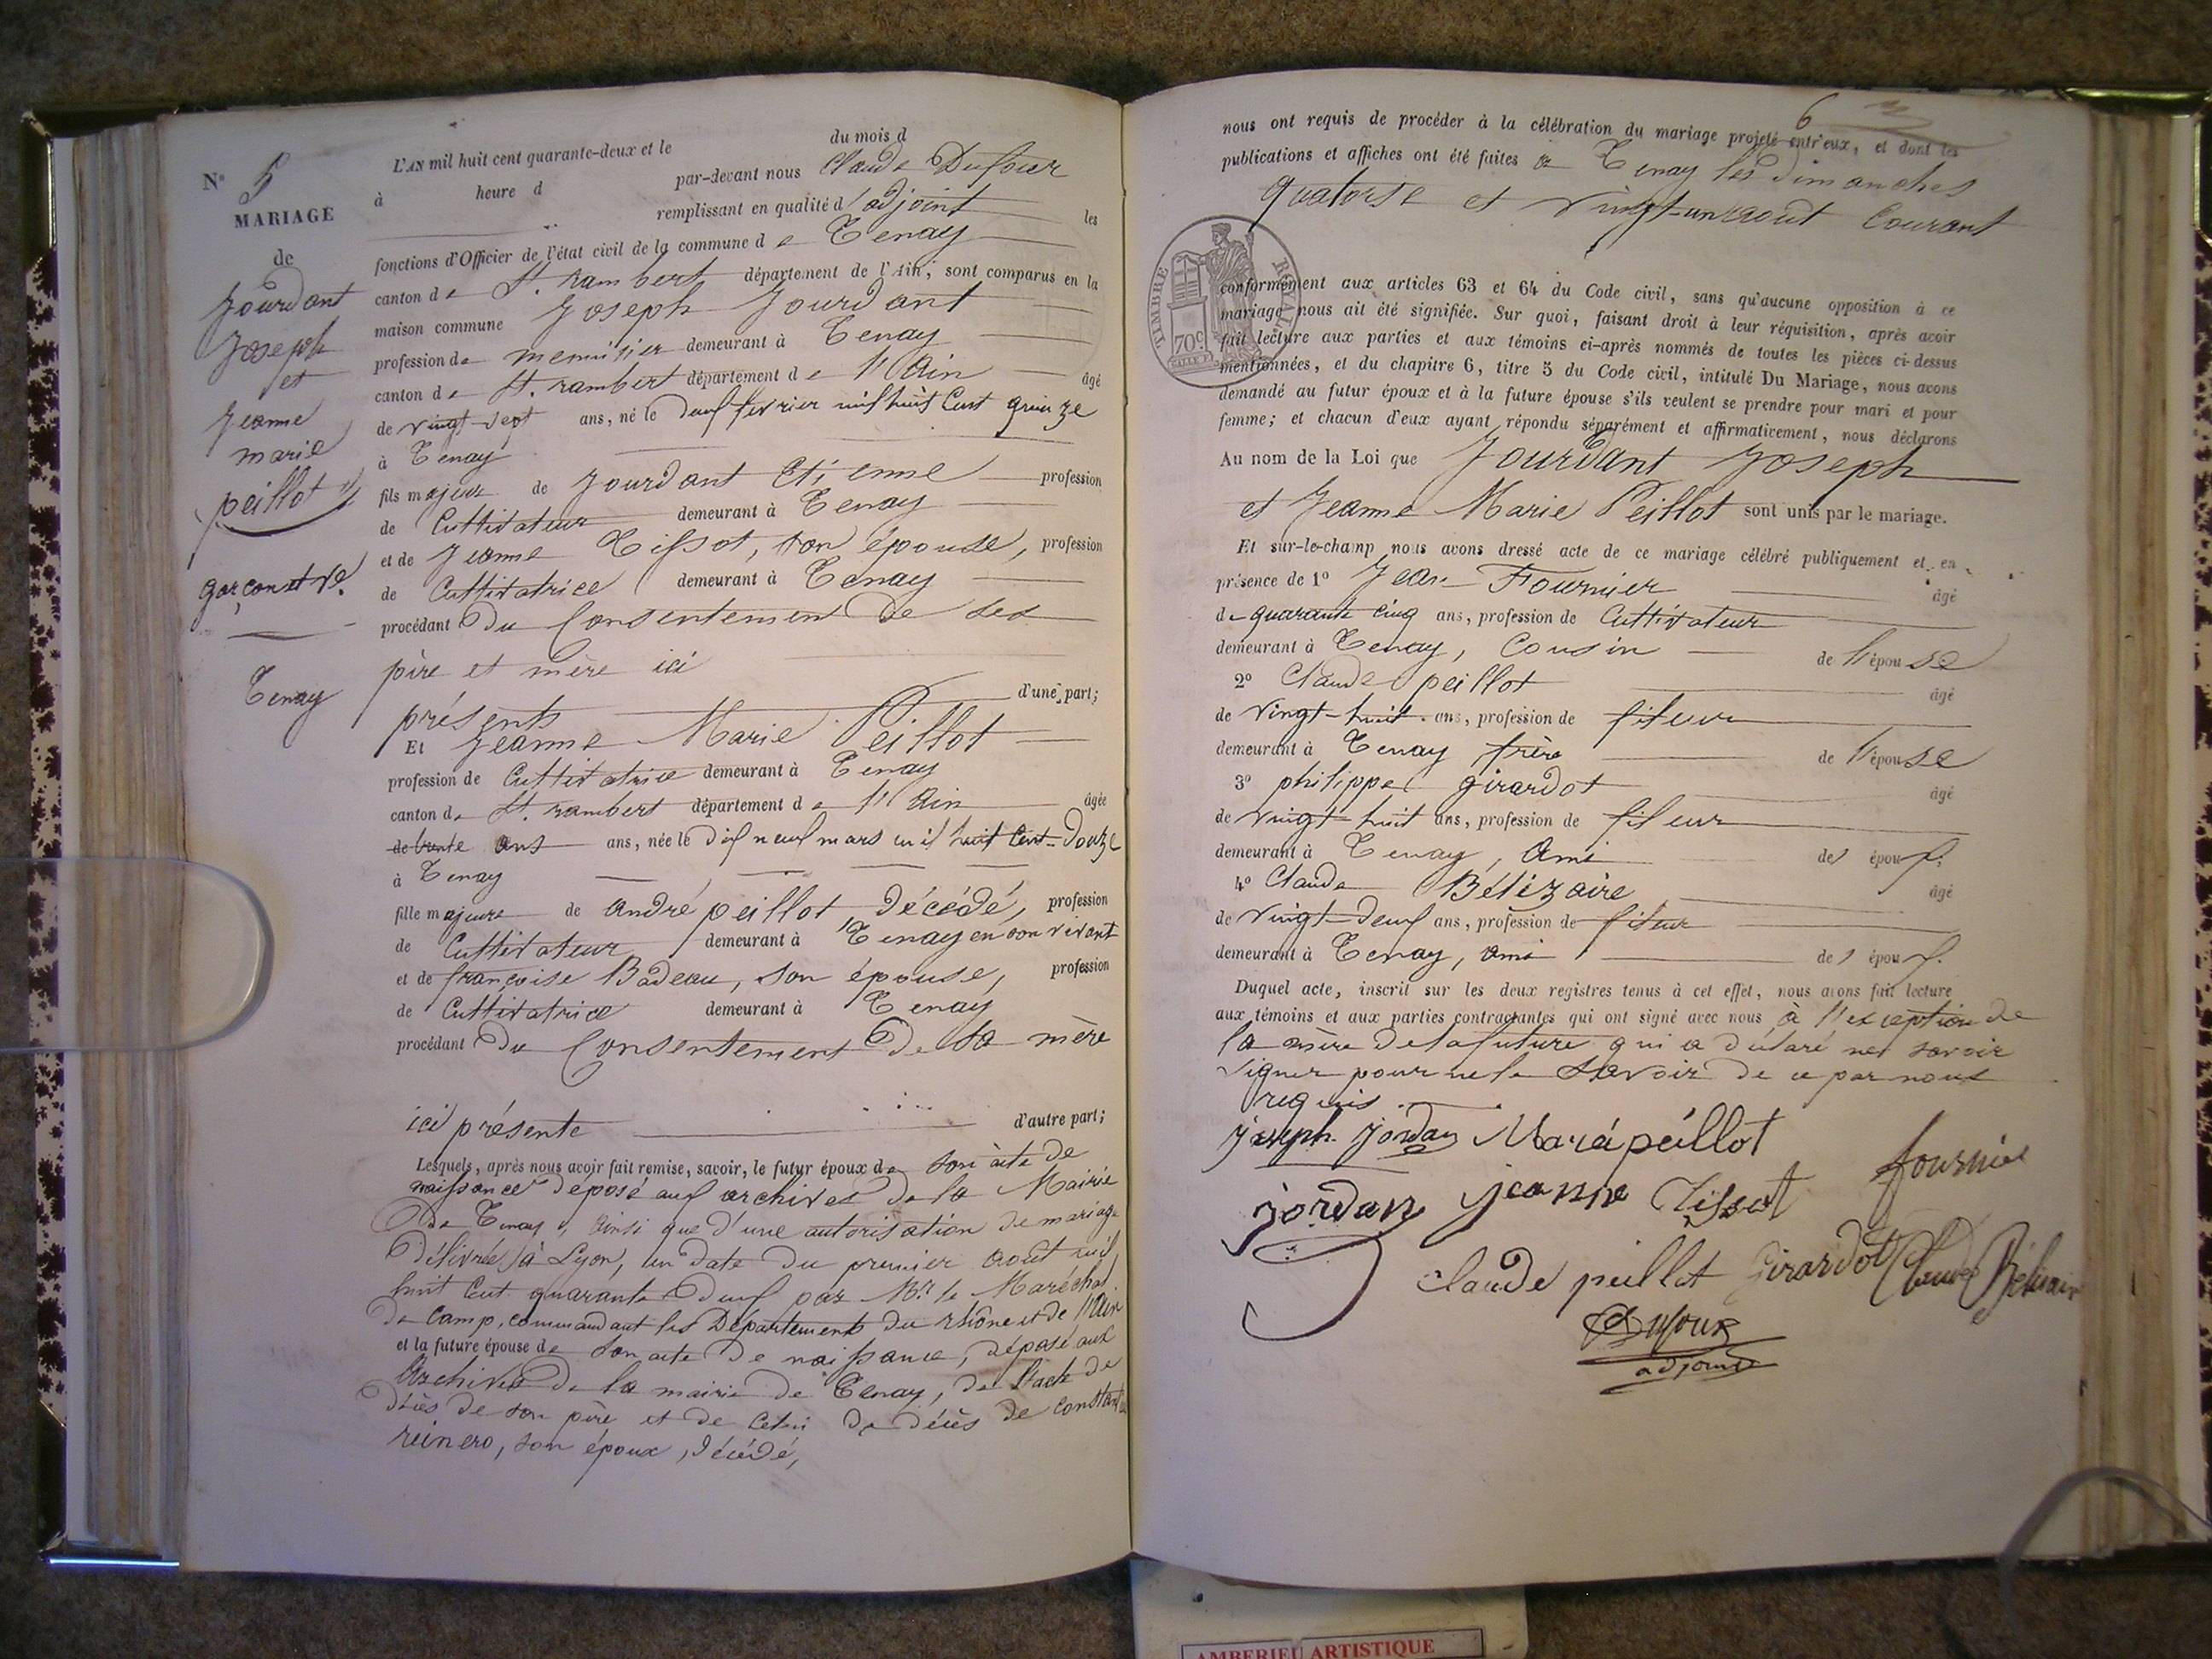 N° 5
MARIAGE
de
Jourdant
Joseph
et
Jeanne
marie
peillot
garçon et ve.
Tenay
L'AN mil huit cent quarante-deux et le du mois d
à heure d par-devant nous Claude Dufour
remplissant en qualité d'adjoint les
fonctions d'Officier de l'état civil de la commune de Tenay
canton de St. rambert département de l'Ain, sont comparus en la
maison commune Joseph Jourdant
profession de menuisier demeurant à Tenay
canton de St. rambert département de l'Ain âgé
de vingt-sept ans, né le deux fevrier mil huit Cent quinze
à Tenay
fils majeur de Jourdant Etienne profession
de Cultivateur demeurant à Tenay
et de Jeanne Tissot, son épouse, profession
de Cultivatrice demeurant à Tenay
procédant du Consentement de ses
père et mère ici
présents d'une part;
Et Jeanne Marie Peillot
profession de Cultivatrice demeurant à Tenay
canton de St. rambert département de l'Ain âgée
de trente ans ans, née le dix neuf mars mil huit Cent-douze
à Tenay
fille majeure de andré peillot décédé, profession
de Cultivateur demeurant à Tenay en son vivant
et de françoise Badeau, son épouse, profession
de Cultivatrice demeurant à Tenay
procédant du Consentement de sa mère
ici présente d'autre part;
Lesquels, après nous avoir fait remise, savoir, le futur époux de son acte de
naissance déposé aux archives de la Mairie
de Tenay, ainsi que d'une autorisation de mariage
délivrée à Lyon, en date du premier août mil
huit Cent quarante deux par Mr. le Maréchal
de Camp, commandant les Départements du rhône et de l'Ain
et la future épouse de son acte de naissance, déposé aux
Archives de la mairie de Tenay, de l'acte de
décès de son père et de Celui de décès de constant
reinero, son époux, décédé,
6
nous ont requis de procéder à la célébration du mariage projeté entr'eux, et dont les
publications et affiches ont été faites à Tenay les dimanches
quatorse et vingt-un août Courant
TIMBRE ROYAL
70c
conformément aux articles 63 et 64 du Code civil, sans qu'aucune opposition à ce
mariage nous ait été signifiée. Sur quoi, faisant droit à leur réquisition, après avoir
fait lecture aux parties et aux témoins ci-après nommés de toutes les pièces ci-dessus
mentionnées, et du chapitre 6, titre 5 du Code civil, intitulé Du Mariage, nous avons
demandé au futur époux et à la future épouse s'ils veulent se prendre pour mari et pour
femme; et chacun d'eux ayant répondu séparément et affirmativement, nous déclarons
Au nom de la Loi que Jourdant Joseph
et Jeanne Marie Peillot sont unis par le mariage.
Et sur-le-champ nous avons dressé acte de ce mariage célébré publiquement et en
présence de 1° Jean Fournier âgé
de quarante cinq ans, profession de Cultivateur
demeurant à Tenay, Cousin de l'épouse
2° Claude peillot âgé
de vingt-huit ans, profession de fileur
demeurant à Tenay frère de l'épouse
3° philippe girardot âgé
de vingt huit ans, profession de fileur
demeurant à Tenay, ami des époux
4° Claude Bélizaire âgé
de vingt-deux ans, profession de fileur
demeurant à Tenay, ami des époux
Duquel acte, inscrit sur les deux registres tenus à cet effet, nous avons fait lecture
aux témoins et aux parties contractantes qui ont signé avec nous à l'exception de
la mère de la future qui a déclaré ne savoir
signer pour ne le Savoir de ce par nous
requis
joseph jordan Marie peillot
jordan jeanne Tissot fournier
claude peillot Girardot Claude Bélisair
Dufour
adjoint
AMBERIEU ARTISTIQUE